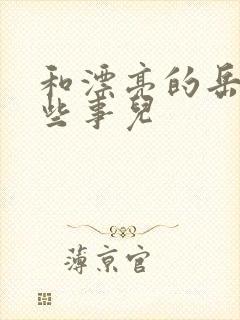 和漂亮的岳
些事兒
薄京官